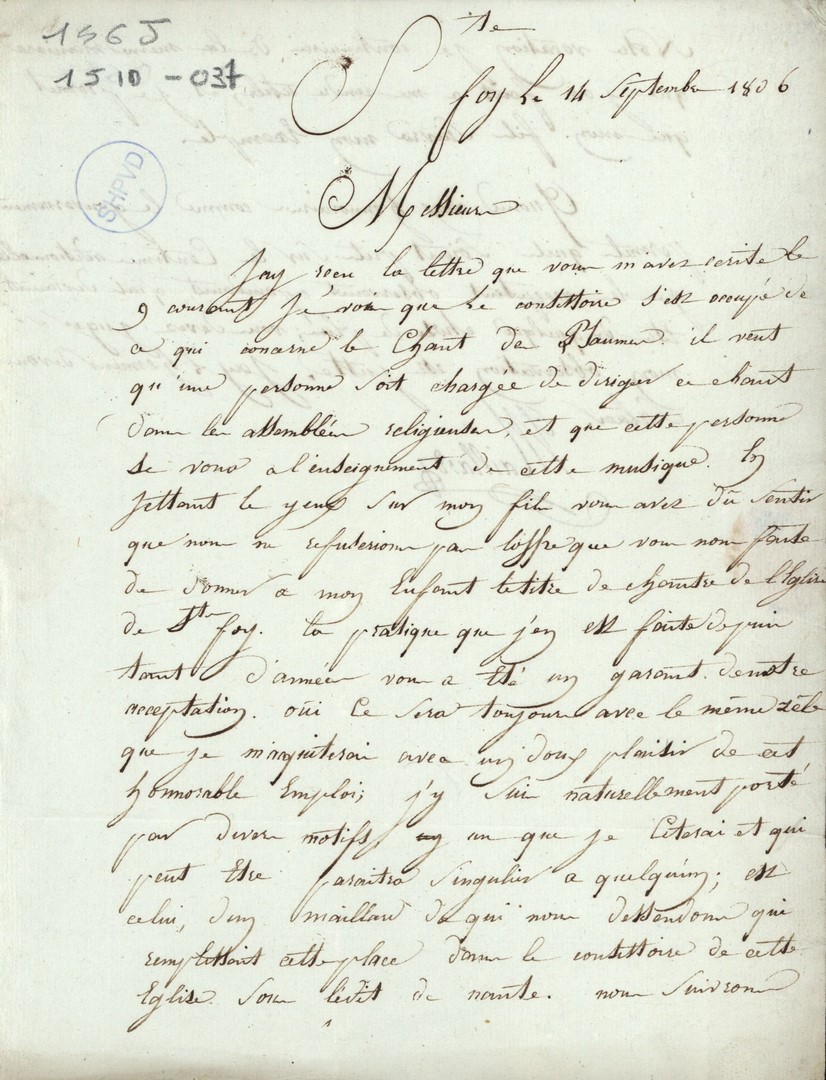 1565
1510-037
SHPVD
Ste
foy le 14 Septembre 1806
Messieurs
Jay recu la lettre que vous m'avez ecrite le
9 courant Je vois que le consistoire s'est occupé de
ce qui concerne le Chant des Psaumes. il veut
qu'une personne soit chargée de diriger ce chant
dans les assemblées religieuses, et que cette personne
se voue a l'enseignement de cette musique. En
jettant les yeux sur mon fils vous avez dû sentir
que nous ne refuserions pas l'offre que vous nous faite
de donner a mon Enfant le titre de chantre de l'Eglise
de Ste foy. la pratique que j'en est faite depuis
tant d'années vous a Eté un garant de notre
acceptation. oüi Ce sera toujours avec le même zèle
que je m'aquiterai avec un doux plaisir de cet
honnorable Emploi; j'y suis naturellement porté
par divers motifs un que je Citerai et qui
peut Etre paraitra singulier a quelqu'uns; est
celui, d'un maillard de qui nous dessendons qui
remplissait cette place dans le consistoire de cette
Eglise sous l'edit de nante. nous suivrons